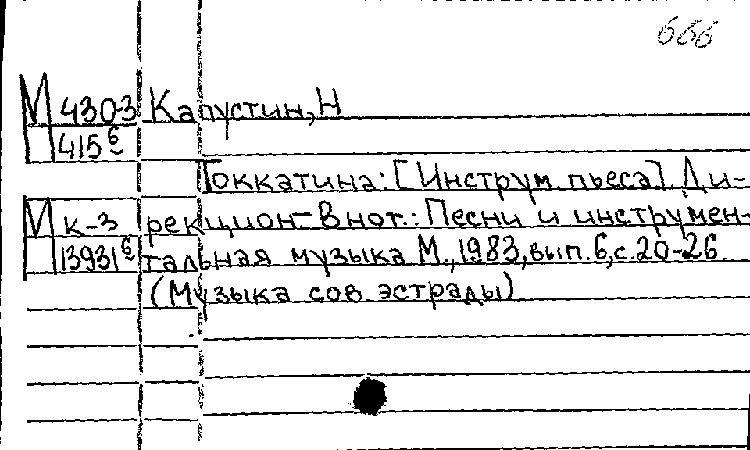 666
М 430-3 Капустин, Н
415 6
Токкатина: [Инструм. пьеса] Ди-
М к-3 рекцион- В нот.: Песни и инструмен-
13931 6 тальная музыка М., 1983, вып. 6, с. 20-26
(Музыка сов. эстрады)